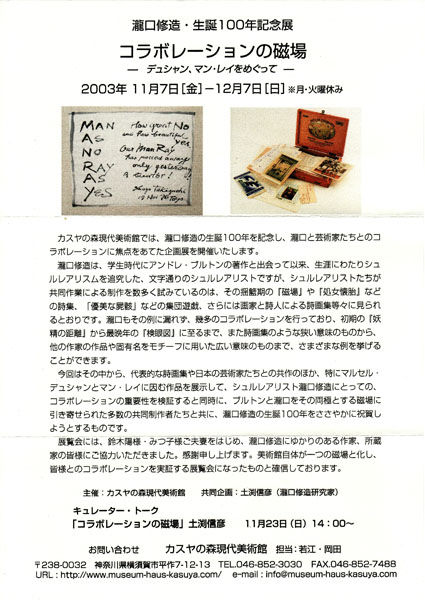 瀧口修造・生誕100年記念展
コラボレーションの磁場
― デュシャン、マン・レイをめぐって ―
2003年 11月7日[金]－12月7日[日] ※月・火曜休み
MAN
AS
NO
RAY
AS
YES
How great No
and how beautiful
yes
Our Man Ray
has passed away
only yesterday
Shuzo Takiguchi
カスヤの森現代美術館では、瀧口修造の生誕100年を記念し、瀧口と芸術家たちとのコ
ラボレーションに焦点をあてた企画展を開催いたします。
瀧口修造は、学生時代にアンドレ・ブルトンの著作と出会って以来、生涯にわたりシュ
ルレアリスムを追究した、文字通りのシュルレアリストですが、シュルレアリストたちが
共同作業による制作を数多く試みているのは、その揺籃期の『磁場』や『処女懐胎』など
の詩集、「優美な屍骸」などの集団遊戯、さらには画家と詩人による詩画集等々に見られ
るとおりです。瀧口もその例に漏れず、幾多のコラボレーションを行っており、初期の『妖
精の距離』から最晩年の『檢眼図』に至るまで、また詩画集のような狭い意味のものから、
他の作家の作品や固有名をモチーフに用いた広い意味のものまで、さまざまな例を挙げる
ことができます。
今回はその中から、代表的な詩画集や日本の芸術家たちとの共作のほか、特にマルセル・
デュシャンとマン・レイに因む作品を展示して、シュルレアリスト瀧口修造にとっての、
コラボレーションの重要性を検証すると同時に、ブルトンと瀧口をその両極とする磁場に
引き寄せられた多数の共同制作者たちと共に、瀧口修造の生誕100年をささやかに祝賀し
ようとするものです。
展覧会には、鈴木陽様・みつ子様ご夫妻をはじめ、瀧口修造にゆかりのある作家、所蔵
家の皆様にご協力いただきました。感謝申し上げます。美術館自体が一つの磁場と化し、
皆様とのコラボレーションを実証する展覧会になったものと確信しております。
主催：カスヤの森現代美術館　共同企画：土渕信彦（瀧口修造研究家）
キュレーター・トーク
「コラボレーションの磁場」土渕信彦　11月23日（日）14：00～
お問い合わせ　カスヤの森現代美術館　担当：若江・岡田
〒238-0032　神奈川県横須賀市平作7-12-13　TEL.046-852-3030　FAX.046-852-7488
URL : http://www.museum-haus-kasuya.com/　e-mail : info@museum-haus-kasuya.com